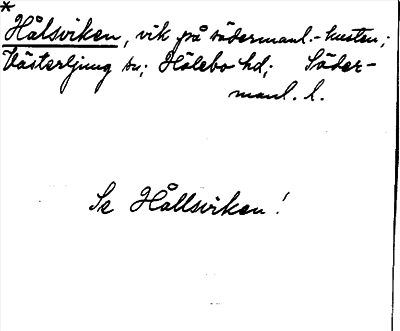 *
Hålsviken, vik på södermanl.-kusten;
Västerljung sn; Hölebo hd; Söder-
manl. l.
Se Hållsviken!